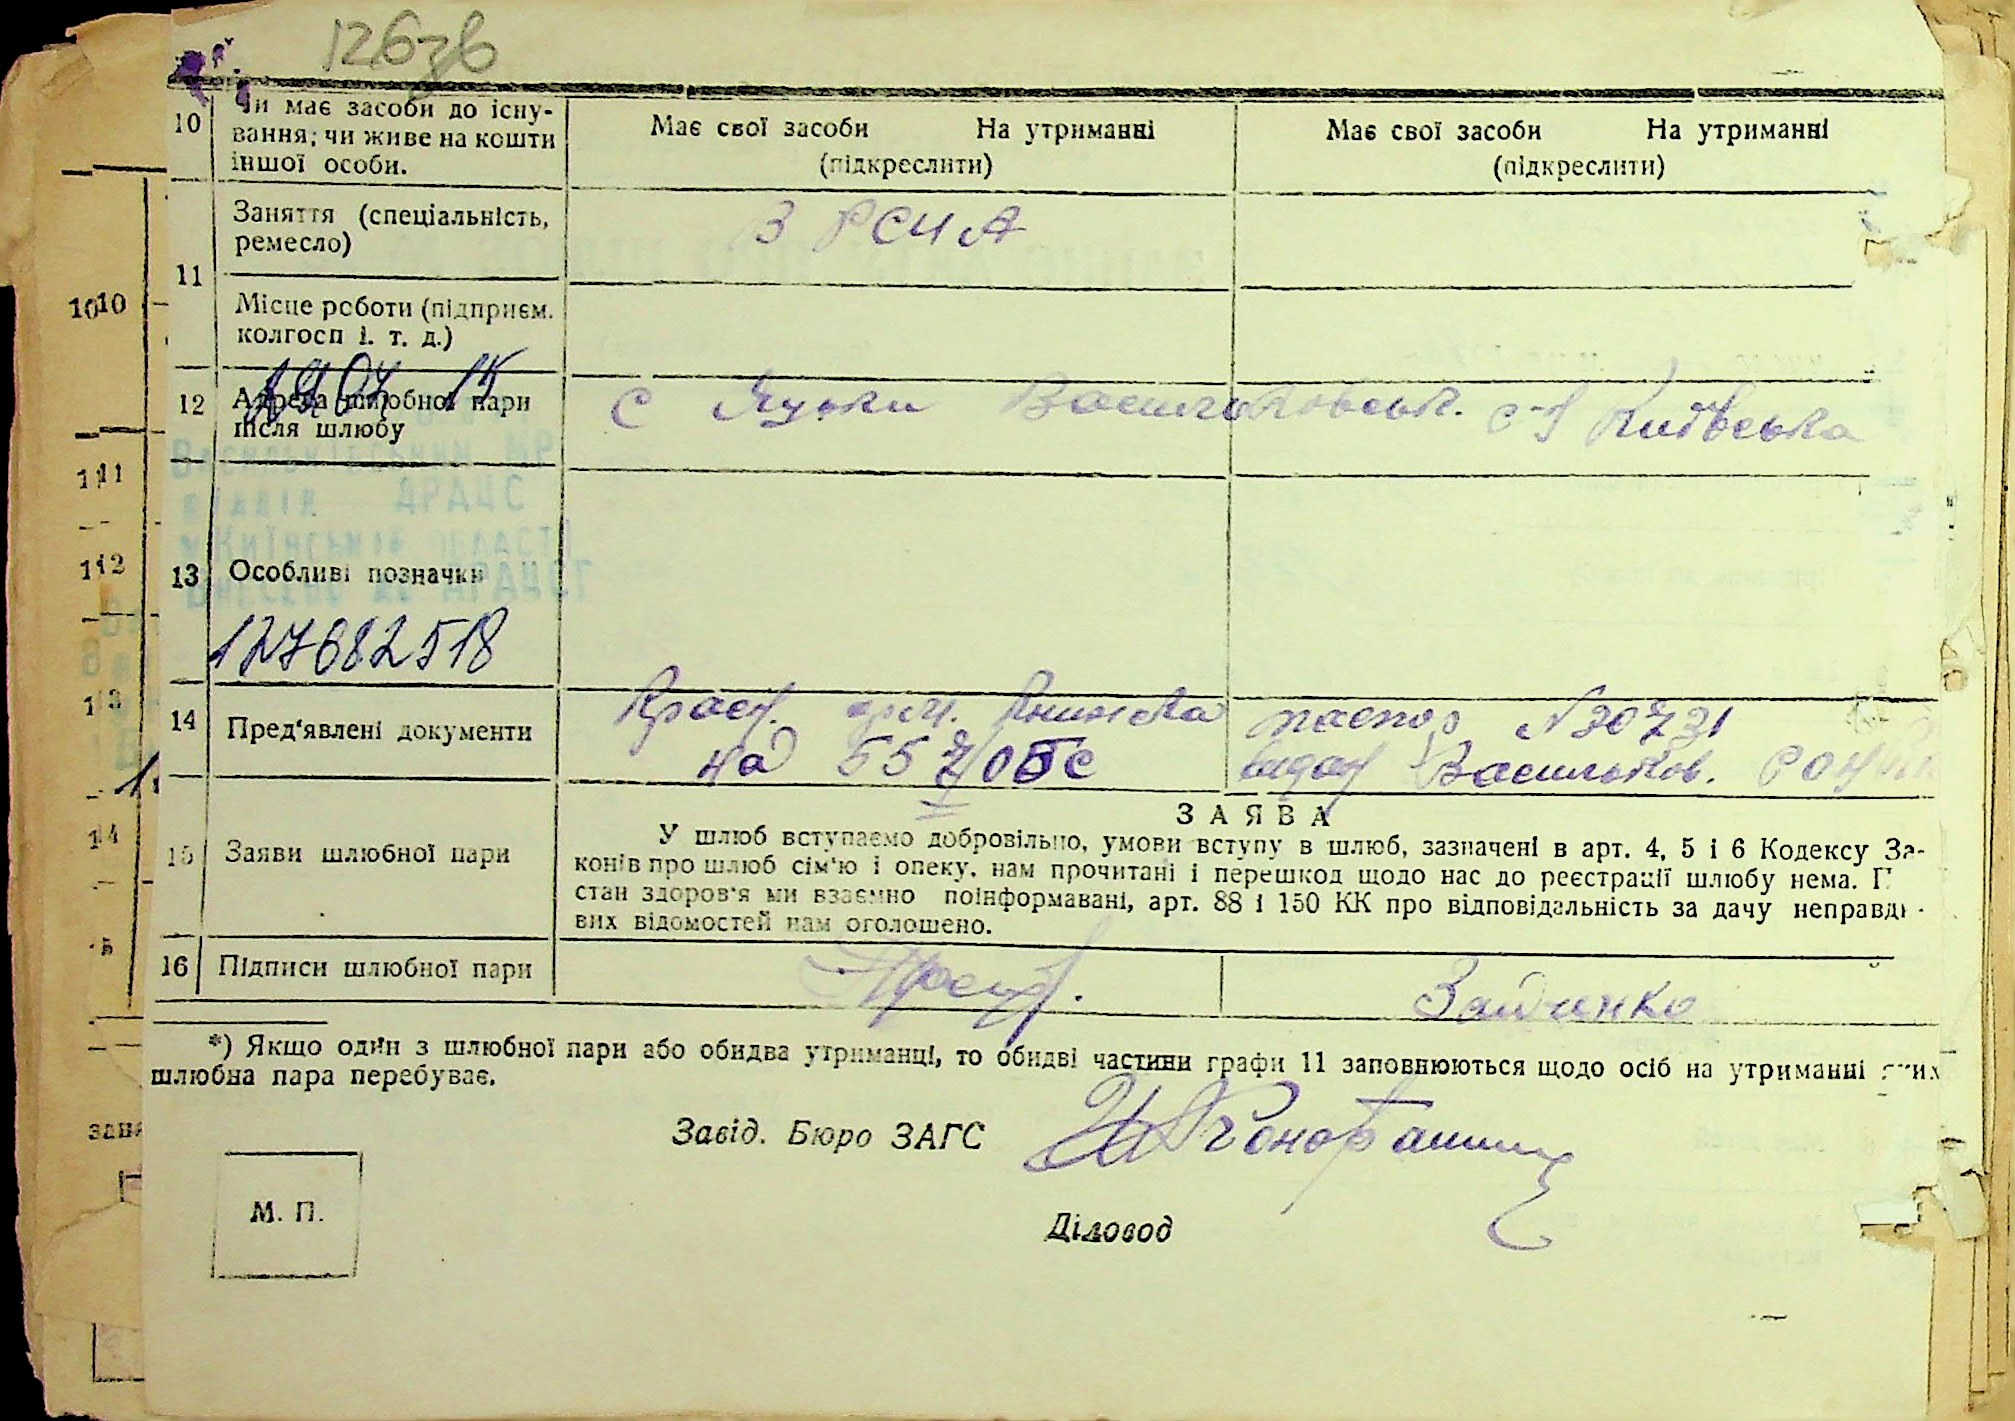 126зв
10
Чи має засоби до існу-
вання; чи живе на кошти
іншої особи.
Має свої засоби На утриманні
(підкреслити)
Має свої засоби На утриманні
(підкреслити)
11
Заняття (спеціальність,
ремесло)
З РСЧА
Місце роботи (підприєм.
колгосп і. т. д.)
12
Адреса шлюбної пари
після шлюбу
с Яцьки Васильковськ. Київська
Васильківським МР
відділ ДРАЦС
у Київській області
внесено до ДРАЦСГ
13
Особливі позначки
127682518
14
Пред'явлені документи
Красн. арм. Книжка
на
паспор №30731
видан Васильков.
15
Заяви шлюбної пари
ЗАЯВА
У шлюб вступаємо добровільно, умови вступу в шлюб, зазначені в арт. 4, 5 і 6 Кодексу За-
конів про шлюб сім'ю і опеку, нам прочитані і перешкод щодо нас до реєстрації шлюбу нема. П
стан здоров'я ми взаємно поінформавані, арт. 88 і 150 КК про відповідальність за дачу неправди-
вих відомостей нам оголошено.
16
Підписи шлюбної пари
Зайченко
*) Якщо один з шлюбної пари або обидва утриманці, то обидві частини графи 11 заповнюються щодо осіб на утриманні яких
шлюбна пара перебуває.
Завід. Бюро ЗАГС
М. П.
Діловод